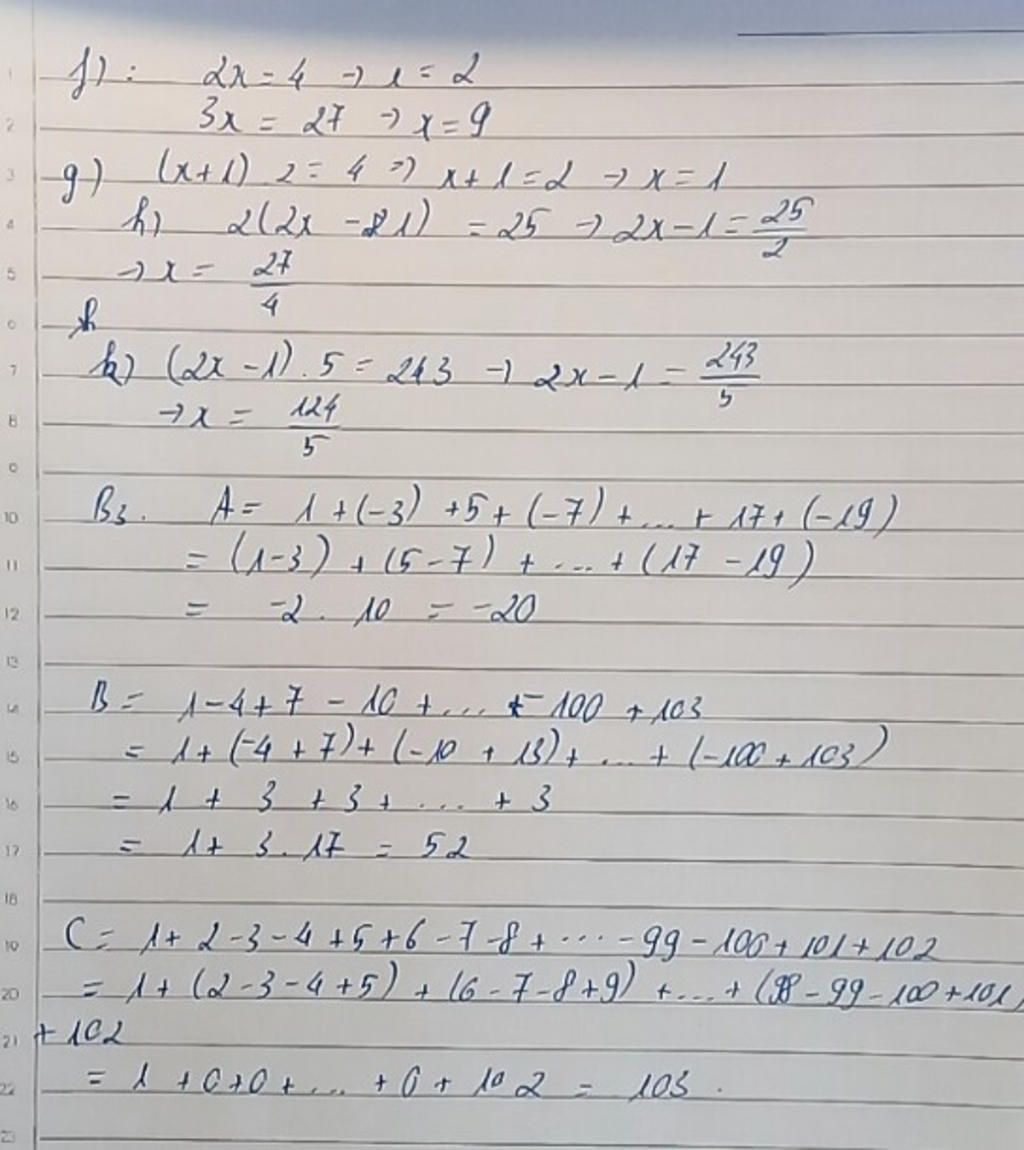 f) : 2x = 4 → x = 2
3x = 27 → x = 9
g) (x+1) 2 = 4 => x+1 = 2 → x = 1
h) 2(2x - 1) = 25 → 2x - 1 = 25/2
→ x = 27/4
h
k) (2x - 1) . 5 = 243 → 2x - 1 = 243/5
→ x = 124/5
B3. A = 1 + (-3) + 5 + (-7) + ... + 17 + (-19)
= (1-3) + (5-7) + ... + (17 - 19)
= -2 . 10 = -20
B = 1 - 4 + 7 - 10 + ... - 100 + 103
= 1 + (-4 + 7) + (-10 + 13) + ... + (-100 + 103)
= 1 + 3 + 3 + ... + 3
= 1 + 3 . 17 = 52
C = 1 + 2 - 3 - 4 + 5 + 6 - 7 - 8 + ... - 99 - 100 + 101 + 102
= 1 + (2 - 3 - 4 + 5) + (6 - 7 - 8 + 9) + ... + (98 - 99 - 100 + 101)
+ 102
= 1 + 0 + 0 + ... + 0 + 102 = 103.